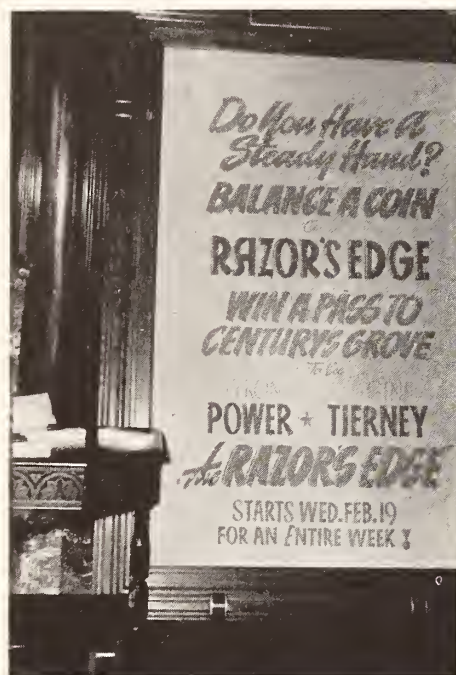 Do You Have A
Steady Hand?
BALANCE A COIN
RAZOR'S EDGE
WIN A PASS TO
CENTURYS GROVE
To See
POWER ★ TIERNEY
The RAZORS EDGE
STARTS WED. FEB. 19
FOR AN ENTIRE WEEK!